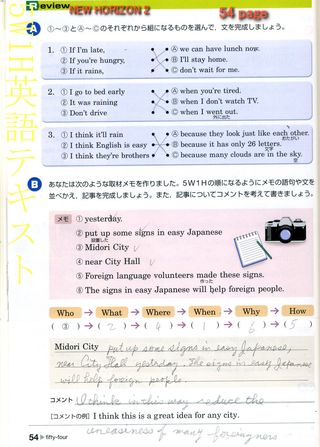 Review NEW HORIZON 2 54 page
A ①~③とⒶ~Ⓒのそれぞれから組になるものを選んで，文を完成しましょう。
1. ① If I'm late, Ⓐ we can have lunch now.
② If you're hungry, Ⓑ I'll stay home.
③ If it rains, Ⓒ don't wait for me.
2. ① I go to bed early Ⓐ when you're tired.
② It was raining Ⓑ when I don't watch TV.
③ Don't drive Ⓒ when I went out.
外に出た
3. ① I think it'll rain Ⓐ because they look just like each other.
おたがい
② I think English is easy Ⓑ because it has only 26 letters.
文字
③ I think they're brothers Ⓒ because many clouds are in the sky.
空
B あなたは次のような取材メモを作りました。5W1Hの順になるようにメモの語句や文を
並べかえ，記事を完成しましょう。また，記事についてコメントを考えて書きましょう。
メモ ① yesterday.
② put up some signs in easy Japanese
設置した
③ Midori City
④ near City Hall
⑤ Foreign language volunteers made these signs.
作った
⑥ The signs in easy Japanese will help foreign people.
Who → What → Where → When → Why → How
( ③ ) → ( 2 ) → ( 4 ) → ( 1 ) → ( 6 ) → ( 5 )
Midori City put up some signs in easy Japanese,
near City Hall yesterday. The signs in easy Japanese
will help foreign people.
コメント I think in this way reduce the
[コメントの例] I think this is a great idea for any city.
uneasiness of many foreigners
54 ▶ fifty-four
5W1H英語テキスト